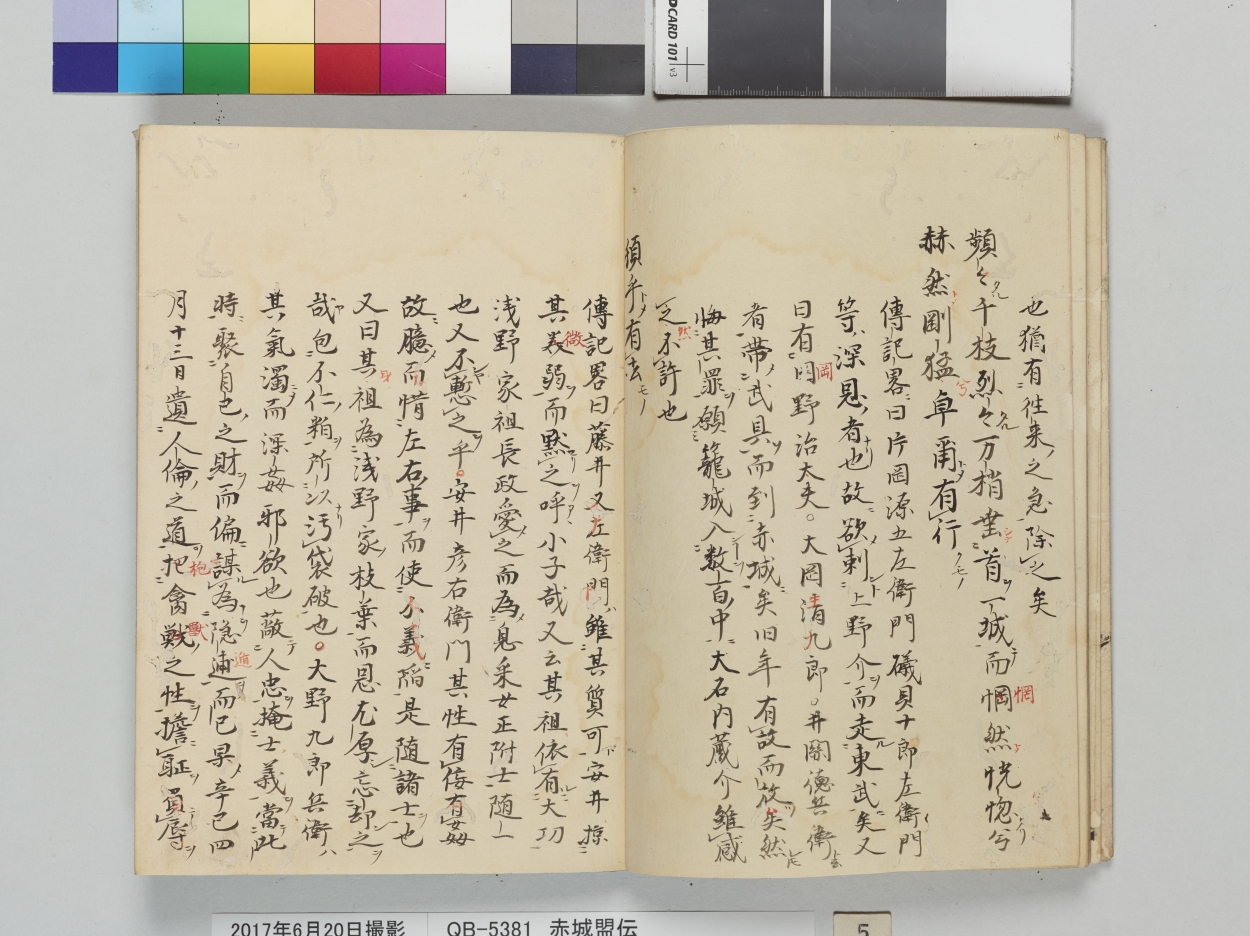 也猶有往来之急除之矣
頻々千枝烈々万梢埀首一城而惘然恍惚兮
赫然剛猛兮卓甭有行
傳記畧曰片岡源五左衛門礒貝十郎左衛門
等深恩者也故欲刺上野介而走東武矣又
曰有岡野治大夫。大岡清九郎。井關德兵衛
者帶武具而到赤城矣旧年有故而放矣然
悔其罪願籠城入数百中大石内蔵介雖感
之不許也
須乎有法
傳記畧曰藤井又左衛門雖其質可安井掠
其微弱而黙之呼小子哉又云其祖依有大功
浅野家祖長政愛之而為息采女正附士随一
也又不慙之乎。安井彦右衛門其性有侫有姦
故臆而惜左右事而使不義陥是随諸士也
又曰其祖為浅野家枝葉而恩尤厚忘却之
哉包不仁粕所以汚袋破也。大野九郎兵衛
其氣濁而深姦邪欲也蔽人忠掩士義當此
時聚自己之財而偏謀為隠遁而已果辛巳四
月十三日遺人倫之道抱禽獣之性擔耻負辱
CARD 101
v3
2017年6月20日撮影 QB-5381 赤城盟伝
5